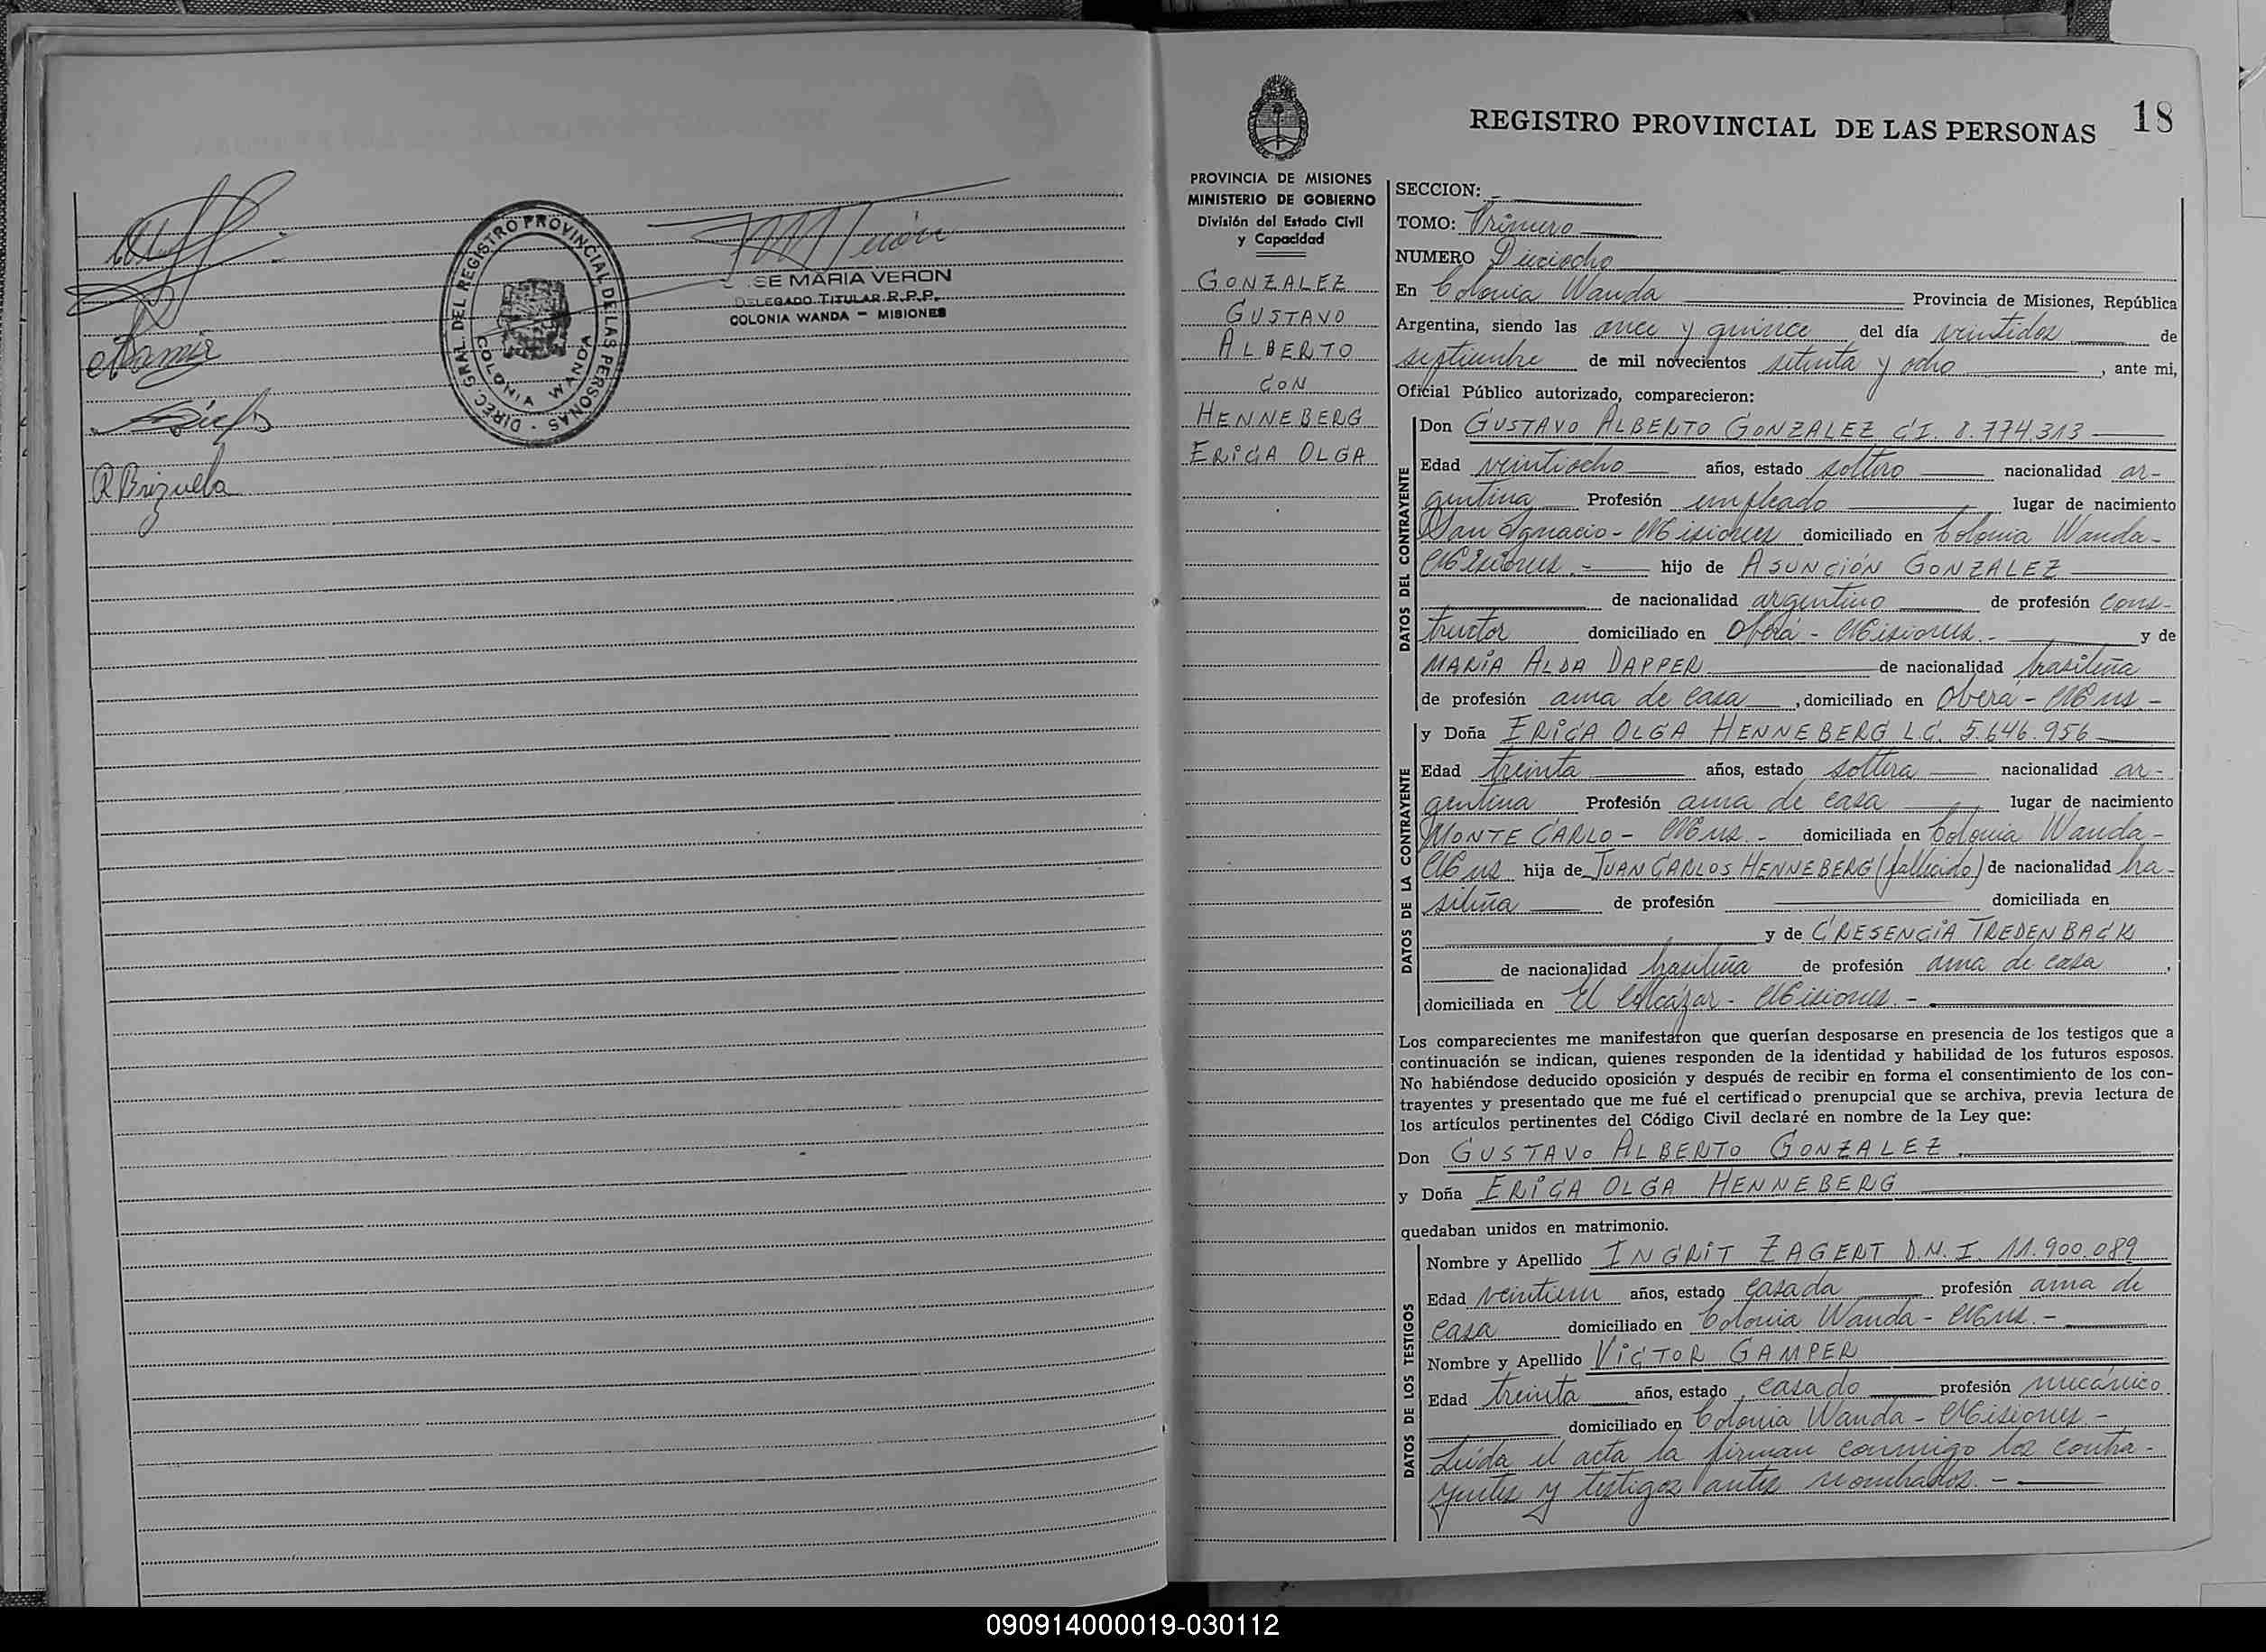 DIREC. GRAL. DEL REGISTRO PROVINCIAL DE LAS PERSONAS
COLONIA WANDA
SE MARIA VERON
DELEGADO TITULAR R.P.P.
COLONIA WANDA - MISIONES
R Brizuela
REGISTRO PROVINCIAL DE LAS PERSONAS 18
PROVINCIA DE MISIONES
MINISTERIO DE GOBIERNO
División del Estado Civil
y Capacidad
GONZALEZ
GUSTAVO
ALBERTO
CON
HENNEBERG
ERICA OLGA
SECCION:
TOMO: Primero
NUMERO Dieciocho
En Colonia Wanda Provincia de Misiones, República
Argentina, siendo las once y quince del día veintidos de
septiembre de mil novecientos setenta y ocho, ante mi,
Oficial Público autorizado, comparecieron:
DATOS DEL CONTRAYENTE
Don GUSTAVO ALBERTO GONZALEZ C.I. 8.774.313
Edad veintiocho años, estado soltero nacionalidad ar-
gentina Profesión empleado lugar de nacimiento
San Ignacio - Misiones domiciliado en Colonia Wanda -
Misiones.- hijo de ASUNCIÓN GONZALEZ
de nacionalidad argentino de profesión cons-
tructor domiciliado en Oberá - Misiones.- y de
MARÍA ALDA DAPPER de nacionalidad brasileña
de profesión ama de casa, domiciliado en Oberá - Mnes.-
DATOS DE LA CONTRAYENTE
y Doña ERICA OLGA HENNEBERG L.C. 5.646.956
Edad treinta años, estado soltera nacionalidad ar-
gentina Profesión ama de casa lugar de nacimiento
MONTE CARLO - Mnes.- domiciliada en Colonia Wanda -
Mnes hija de JUAN CARLOS HENNEBERG (fallecido) de nacionalidad bra-
sileña de profesión domiciliada en
y de CRESENCIA TREDENBACK
de nacionalidad brasileña de profesión ama de casa,
domiciliada en El Alcázar - Misiones.-
Los comparecientes me manifestaron que querían desposarse en presencia de los testigos que a
continuación se indican, quienes responden de la identidad y habilidad de los futuros esposos.
No habiéndose deducido oposición y después de recibir en forma el consentimiento de los con-
trayentes y presentado que me fué el certificado prenupcial que se archiva, previa lectura de
los artículos pertinentes del Código Civil declaré en nombre de la Ley que:
Don GUSTAVO ALBERTO GONZALEZ
y Doña ERICA OLGA HENNEBERG
quedaban unidos en matrimonio.
DATOS DE LOS TESTIGOS
Nombre y Apellido INGRIT ZAGERT D.N.I. 11.900.089
Edad veintiun años, estado casada profesión ama de
casa domiciliado en Colonia Wanda - Mnes.-
Nombre y Apellido VICTOR GAMPER
Edad treinta años, estado casado profesión mecánico
domiciliado en Colonia Wanda - Misiones -
Leída el acta la firman conmigo los contra-
yentes y testigos antes nombrados.-
090914000019-030112